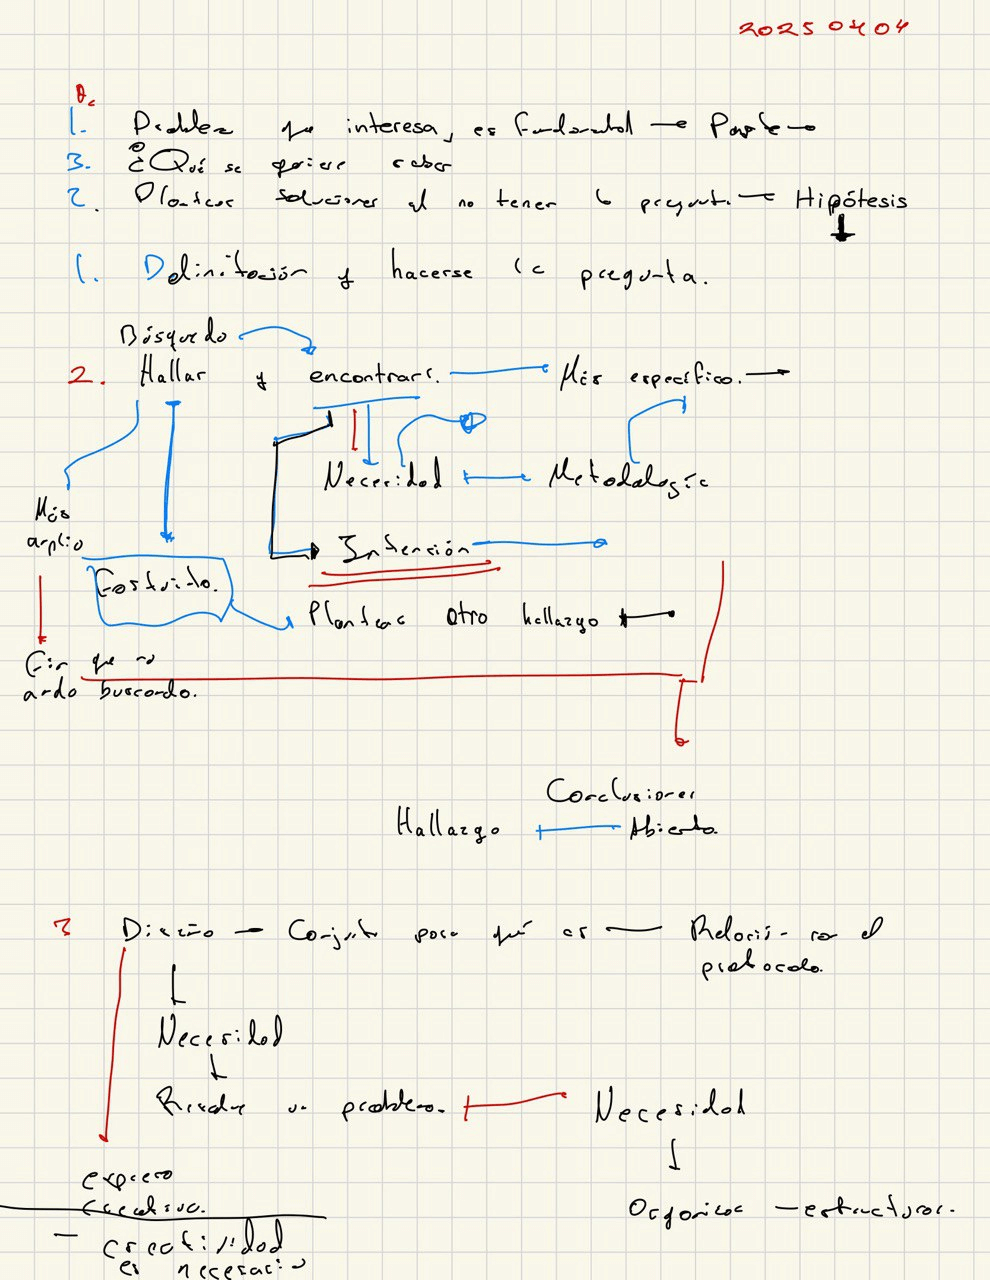 20250404
1. Problema que interesa, es fundamental → Parte
3. ¿Qué se quiere saber
2. Plantear soluciones al no tener la pregunta — Hipótesis
1. Delimitación y hacerse la pregunta.
Búsqueda
2. Hallar y encontrar. Más específico.
Necesidad Metodología
Más
amplio
Intensión
Fortuito.
Plantear otro hallazgo
que no
ando buscando.
Conclusiones
Hallazgo Abierta.
3 Diseño — Conjunto para qué es — Relación con el
protocolo.
Necesidad
Resolver un problema. Necesidad
expreso
creativo.
Organizar — estructurar.
— creatividad
es necesario